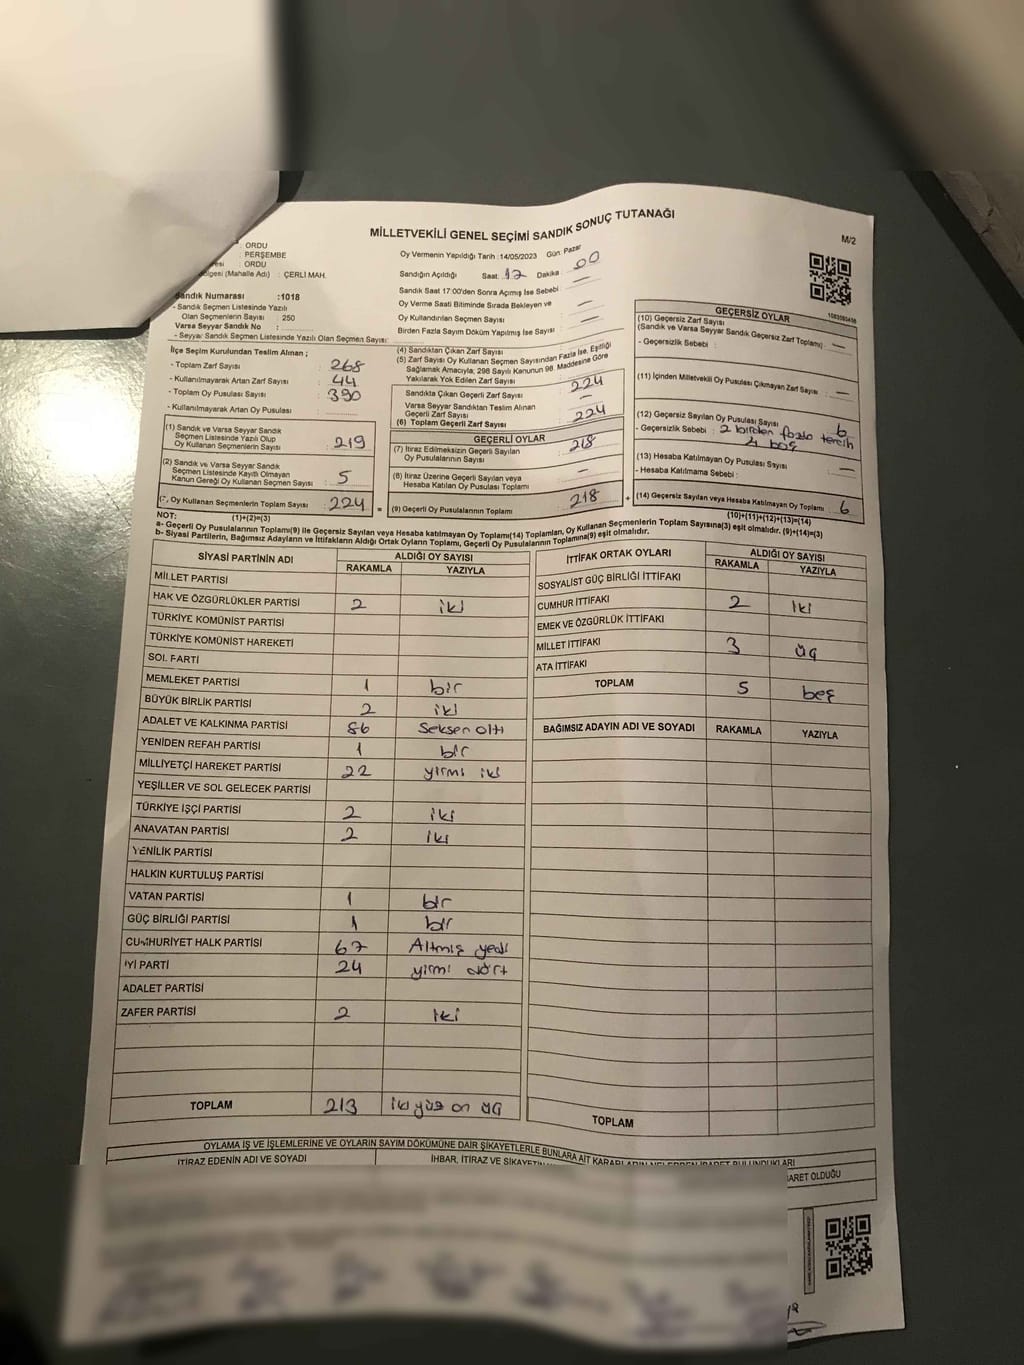 MİLLETVEKİLİ GENEL SEÇİMİ SANDIK SONUÇ TUTANAĞI
M/2
: ORDU
: PERŞEMBE
: ORDU
(Mahalle Adı) : ÇERLİ MAH.
Sandık Numarası :1018
- Sandık Seçmen Listesinde Yazılı
Olan Seçmenlerin Sayısı : 250
Varsa Seyyar Sandık No :
- Seyyar Sandık Seçmen Listesinde Yazılı Olan Seçmen Sayısı:
Oy Vermenin Yapıldığı Tarih :14/05/2023 Gün: Pazar
Sandığın Açıldığı Saat: Dakika: 00
Sandık Saat 17:00'den Sonra Açımış İse Sebebi : —
Oy Verme Saati Bitiminde Sırada Bekleyen ve
Oy Kullandırılan Seçmen Sayısı : —
Birden Fazla Sayım Döküm Yapılmış İse Sayısı : —
İlçe Seçim Kurulundan Teslim Alınan ;
- Toplam Zarf Sayısı : 268
- Kullanılmayarak Artan Zarf Sayısı : 44
- Toplam Oy Pusulası Sayısı : 390
- Kullanılmayarak Artan Oy Pusulası :
(1) Sandık ve Varsa Seyyar Sandık
Seçmen Listesinde Yazılı Olup
Oy Kullanan Seçmenlerin Sayısı : 219
(2) Sandık ve Varsa Seyyar Sandık
Seçmen Listesinde Kayıtlı Olmayan
Kanun Gereği Oy Kullanan Seçmen Sayısı : 5
Oy Kullanan Seçmenlerin Toplam Sayısı : 224
(1)+(2)=(3)
(4) Sandıktan Çıkan Zarf Sayısı
(5) Zarf Sayısı Oy Kullanan Seçmen Sayısından Fazla İse, Eşitliği
Sağlamak Amacıyla; 298 Sayılı Kanunun 98. Maddesine Göre
Yakılarak Yok Edilen Zarf Sayısı
Sandıkta Çıkan Geçerli Zarf Sayısı : 224
Varsa Seyyar Sandıktan Teslim Alınan
Geçerli Zarf Sayısı : —
(6) Toplam Geçerli Zarf Sayısı : 224
GEÇERLİ OYLAR
(7) İtiraz Edilmeksizin Geçerli Sayılan
Oy Pusulalarının Sayısı : 218
(8) İtiraz Üzerine Geçerli Sayılan veya
Hesaba Katılan Oy Pusulası Toplamı : —
= (9) Geçerli Oy Pusulalarının Toplamı : 218 +
1083593456
GEÇERSİZ OYLAR
(10) Geçersiz Zarf Sayısı
(Sandık ve Varsa Seyyar Sandık Geçersiz Zarf Toplamı) : —
- Geçersizlik Sebebi :
(11) İçinden Milletvekili Oy Pusulası Çıkmayan Zarf Sayısı : —
(12) Geçersiz Sayılan Oy Pusulası Sayısı : 6
- Geçersizlik Sebebi : 2 birden fazla tercih
4 boş
(13) Hesaba Katılmayan Oy Pusulası Sayısı : —
- Hesaba Katılmama Sebebi :
(14) Geçersiz Sayılan veya Hesaba Katılmayan Oy Toplamı : 6
(10)+(11)+(12)+(13)=(14)
NOT:
a- Geçerli Oy Pusulalarının Toplamı(9) ile Geçersiz Sayılan veya Hesaba katılmayan Oy Toplamı(14) Toplamları, Oy Kullanan Seçmenlerin Toplam Sayısına(3) eşit olmalıdır. (9)+(14)=(3)
b- Siyasi Partilerin, Bağımsız Adayların ve İttifakların Aldığı Oy Sayısı, Geçerli Oy Pusulalarının Toplamına(9) eşit olmalıdır.
SİYASİ PARTİNİN ADI ALDIĞI OY SAYISI
RAKAMLA YAZIYLA
MİLLET PARTİSİ
HAK VE ÖZGÜRLÜKLER PARTİSİ 2 iki
TÜRKİYE KOMÜNİST PARTİSİ
TÜRKİYE KOMÜNİST HAREKETİ
SOL PARTİ
MEMLEKET PARTİSİ 1 bir
BÜYÜK BİRLİK PARTİSİ 2 iki
ADALET VE KALKINMA PARTİSİ 86 Seksen altı
YENİDEN REFAH PARTİSİ 1 bir
MİLLİYETÇİ HAREKET PARTİSİ 22 yirmi iki
YEŞİLLER VE SOL GELECEK PARTİSİ
TÜRKİYE İŞÇİ PARTİSİ 2 iki
ANAVATAN PARTİSİ 2 iki
YENİLİK PARTİSİ
HALKIN KURTULUŞ PARTİSİ
VATAN PARTİSİ 1 bir
GÜÇ BİRLİĞİ PARTİSİ 1 bir
CUMHURİYET HALK PARTİSİ 67 Altmış yedi
İYİ PARTİ 24 yirmi dört
ADALET PARTİSİ
ZAFER PARTİSİ 2 iki
TOPLAM 213 iki yüz on üç
İTTİFAK ORTAK OYLARI ALDIĞI OY SAYISI
RAKAMLA YAZIYLA
SOSYALİST GÜÇ BİRLİĞİ İTTİFAKI
CUMHUR İTTİFAKI 2 iki
EMEK VE ÖZGÜRLÜK İTTİFAKI
MİLLET İTTİFAKI 3 üç
ATA İTTİFAKI
TOPLAM 5 beş
BAĞIMSIZ ADAYIN ADI VE SOYADI RAKAMLA YAZIYLA
TOPLAM
OYLAMA İŞ VE İŞLEMLERİNE VE OYLARIN SAYIM DÖKÜMÜNE DAİR ŞİKAYETLERLE BUNLARA AİT KARARLARIN NELERDEN İBARET BULUNDUKLARI
İTİRAZ EDENİN ADI VE SOYADI İHBAR, İTİRAZ VE ŞİKAYETİN
OLDUĞU